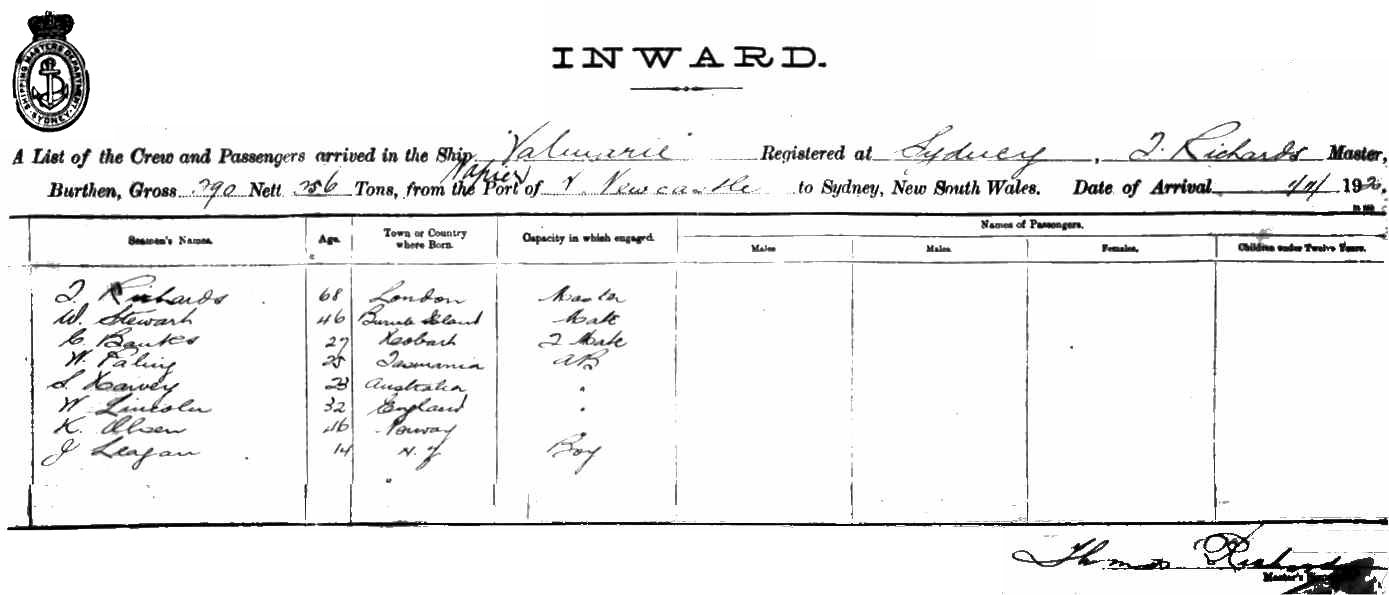 SHIPPING MASTERS DEPARTMENT
SYDNEY
INWARD.
A List of the Crew and Passengers arrived in the Ship Valmarie Registered at Sydney, T. Richards Master,
Napier
Burthen, Gross 290 Nett 256 Tons, from the Port of Newcastle to Sydney, New South Wales. Date of Arrival 192
Names of Passengers.
Seamen's Names. Age. Town or Country where Born. Capacity in which engaged. Males Males. Females. Children under Twelve Years.
T. Richards 68 London Master
W. Stewart 46 Island Mate
C. Banks 27 Hobart 2 Mate
W. Paling 25 Tasmania AB
S. Harvey 23 Australia "
W. Lincoln 32 England "
K. Olsen 46 Norway
J Leagan 14 N. Z Boy
Thomas Richards
Master's